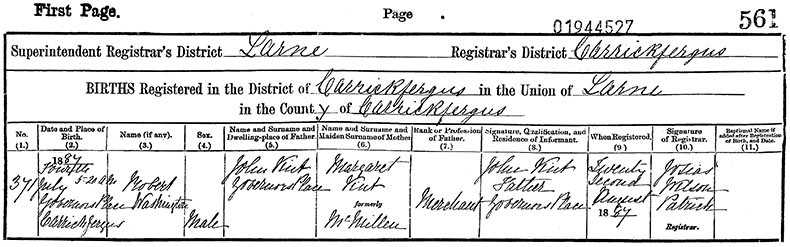 First Page.
Page
01944527
561
Superintendent Registrar's District Larne Registrar's District Carrickfergus
BIRTHS Registered in the District of Carrickfergus in the Union of Larne
in the County of Carrickfergus
No. (1.)
Date and Place of Birth. (2.)
Name (if any). (3.)
Sex. (4.)
Name and Surname and Dwelling-place of Father. (5.)
Name and Surname and Maiden Surname of Mother (6.)
Rank or Profession of Father. (7.)
Signature, Qualification, and Residence of Informant. (8.)
When Registered. (9)
Signature of Registrar. (10.)
Baptismal Name if added after Registration of Birth, and Date. (11.)
371
1887
Fourth
July 5-20 A M
Governors Place
Carrickfergus
Robert
Washington
Male
John Kirk
Governors Place
Margaret
Kirk
formerly
McMillen
Merchant
John Kirk
Father
Governors Place
Twenty
Second
August
1887
Josias
Wilson
Patrick
Registrar.